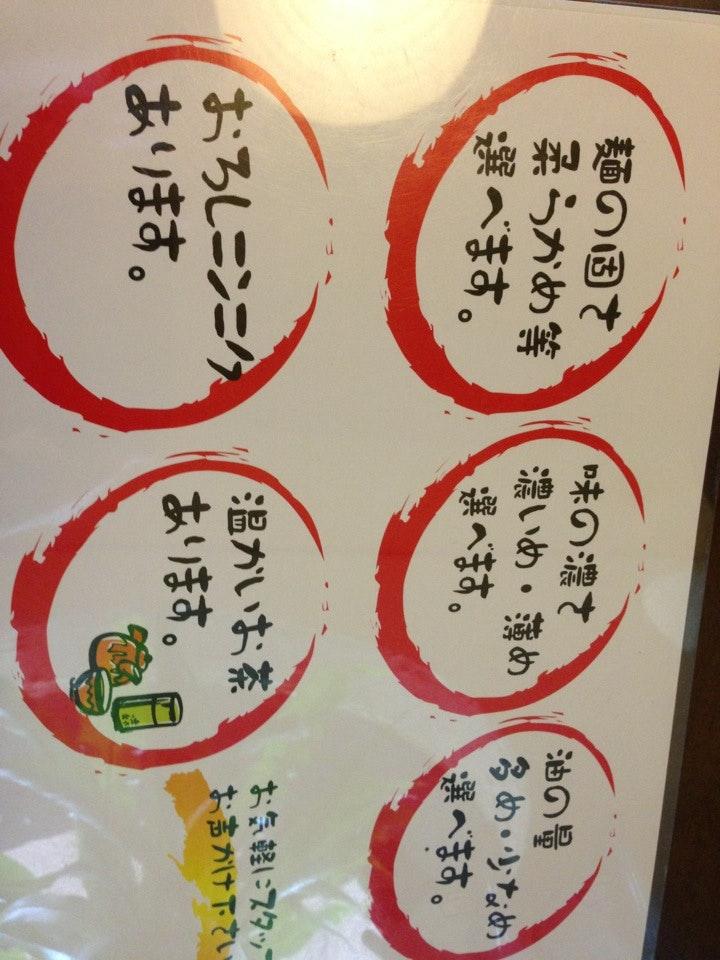 麺の固さ
柔らかめ等
選べます。
おろしニンニク
あります。
味の濃さ
濃いめ・薄め
選べます。
温かいお茶
あります。
油の量
多め・少なめ
選べます。
お気軽にスタッフ
お声かけ下さい